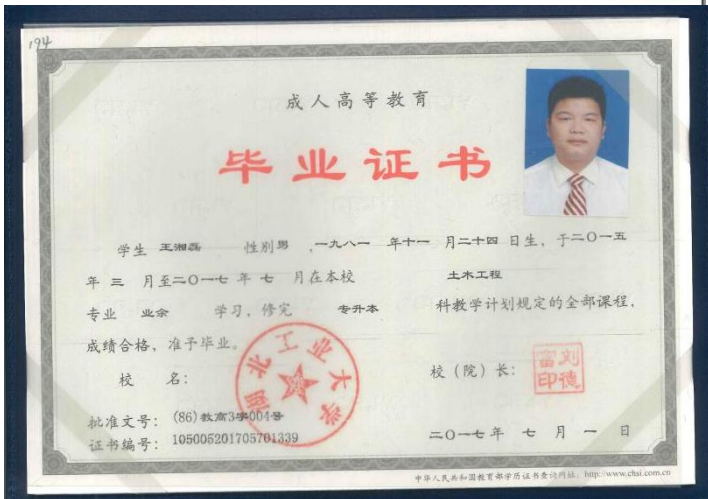 194
成人高等教育
毕业证书
学生 王湘磊 性别男，一九八一 年十一 月二十四 日生，于二〇一五
年 三 月至二〇一七 年 七 月在本校 土木工程
专业 业余 学习，修完 专升本 科教学计划规定的全部课程，
成绩合格，准予毕业。
校 名：
湖北工业大学
校（院）长：
刘德富印
批准文号：(86)教高3字004号
证书编号：105005201705701339
二〇一七年 七 月 一 日
中华人民共和国教育部学历证书查询网址：http://www.chsi.com.cn